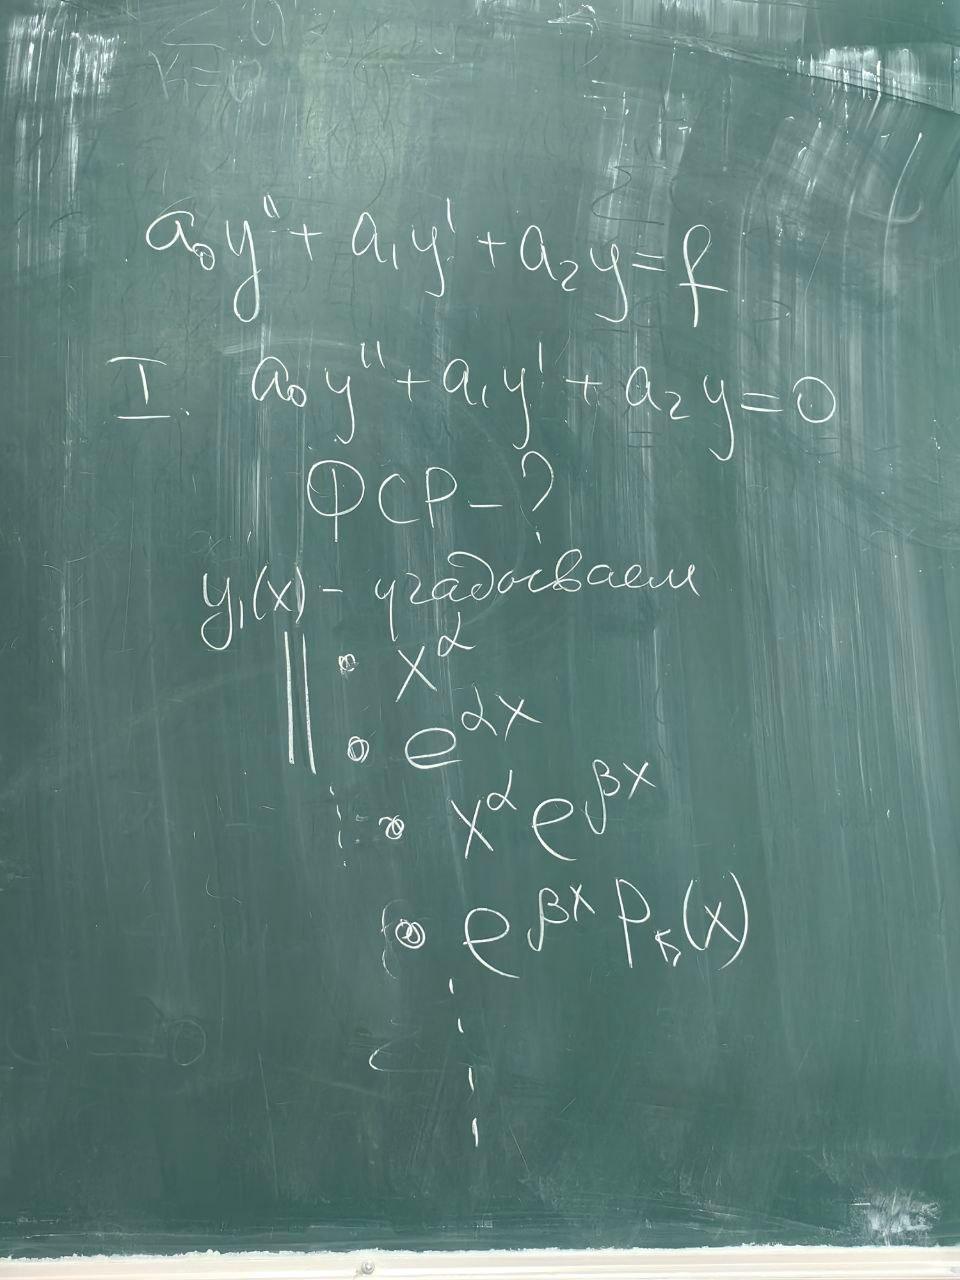 a₀y'' + a₁y' + a₂y = f
I. a₀y'' + a₁y' + a₂y = 0
ФСР - ?
y₁(x) - угадываем
• x^α
• e^{αx}
• x^α e^{βx}
• e^{βx} P_k(x)